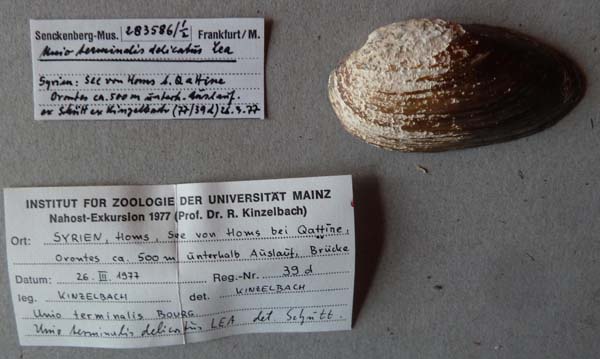 Senckenberg-Mus. 283586/1/2 Frankfurt/M.
Unio terminalis delicatus Lea
Syrien: See von Homs b. Qattine
Orontes ca. 500 m unterh. Auslauf.
ex Schütt ex Kinzelbach (77/39d) 26.3.77
INSTITUT FÜR ZOOLOGIE DER UNIVERSITÄT MAINZ
Nahost-Exkursion 1977 (Prof. Dr. R. Kinzelbach)
Ort: SYRIEN, Homs, See von Homs bei Qattine,
Orontes ca. 500 m unterhalb Auslauf, Brücke
Datum: 26. III 1977 Reg.-Nr. 39 d
leg. KINZELBACH det. KINZELBACH
Unio terminalis BOURG.
Unio terminalis delicatus LEA det. Schütt.